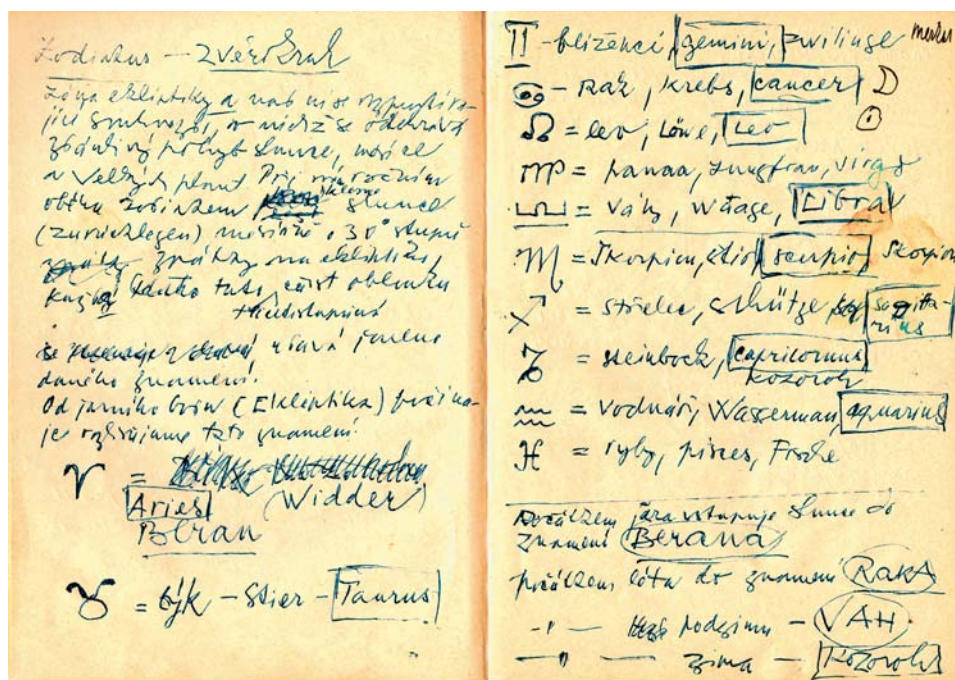 Zodiakus — Zvěrokruh
zóna ekliptiky a nad ní se rozprostíra-
jící souhvězdí, v nichž se odehrává
zdánlivý pohyb slunce, měsíce
a velkých planet Při výročním
oběhu zodiakem slunce
(zurücklegen) 30° stupňů
na ekliptice,
tato část oblouku
třicetistupňová
se dostává jméno
daného znamení.
Od jarního bodu (Ekliptika) počína-
je rozlišujeme tato znamení:
♈ =
Aries (Widder)
Beran
♉ = býk – Stier – Taurus
♊ - blíženci, gemini, Zwilinge
♋ - Rak, Krebs, cancer ☽
☉
♌ = lev, Löwe, Leo
♍ = panna, Jungfrau, virgo
♎ = váhy, Waage, Libra
♏ = Skorpion, scorpio, Skorpion
♐ = střelec, schütze, sagitta-
rius
♑ = steinbock, capricornus
kozoroh
♒ = vodnář, Wasserman, aquarius
♓ = ryby, pisces, Fische
Počátkem jara vstupuje slunce do
znamení Berana
počátkem léta do znamení Raka
-"- podzimu – VAH
-"- zima – Kozoroh